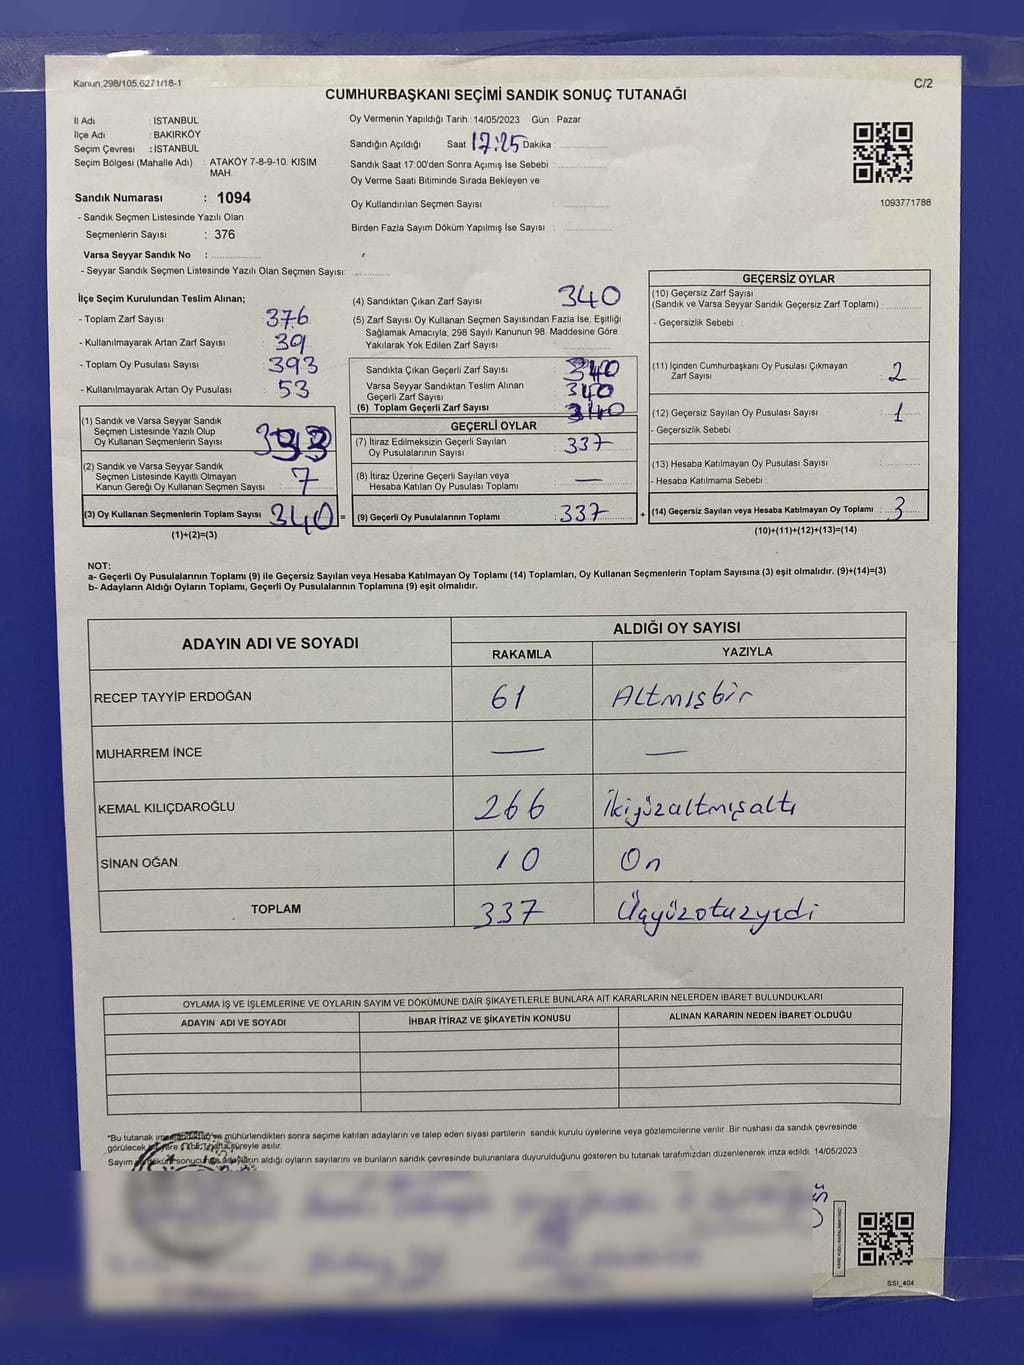 Kanun,298/105,6271/18-1
C/2
CUMHURBAŞKANI SEÇİMİ SANDIK SONUÇ TUTANAĞI
İl Adı : İSTANBUL
İlçe Adı : BAKIRKÖY
Seçim Çevresi : İSTANBUL
Seçim Bölgesi (Mahalle Adı) : ATAKÖY 7-8-9-10. KISIM
MAH.
Sandık Numarası : 1094
- Sandık Seçmen Listesinde Yazılı Olan
Seçmenlerin Sayısı : 376
Varsa Seyyar Sandık No :
- Seyyar Sandık Seçmen Listesinde Yazılı Olan Seçmen Sayısı:
Oy Vermenin Yapıldığı Tarih : 14/05/2023 Gün : Pazar
Sandığın Açıldığı Saat 17:25 Dakika :
Sandık Saat 17:00'den Sonra Açımış İse Sebebi :
Oy Verme Saati Bitiminde Sırada Bekleyen ve
Oy Kullandırılan Seçmen Sayısı :
Birden Fazla Sayım Döküm Yapılmış İse Sayısı :
1093771788
İlçe Seçim Kurulundan Teslim Alınan;
- Toplam Zarf Sayısı 376
- Kullanılmayarak Artan Zarf Sayısı : 39
- Toplam Oy Pusulası Sayısı : 393
- Kullanılmayarak Artan Oy Pusulası : 53
(1) Sandık ve Varsa Seyyar Sandık
Seçmen Listesinde Yazılı Olup
Oy Kullanan Seçmenlerin Sayısı
(2) Sandık ve Varsa Seyyar Sandık
Seçmen Listesinde Kayıtlı Olmayan
Kanun Gereği Oy Kullanan Seçmen Sayısı : 7
(3) Oy Kullanan Seçmenlerin Toplam Sayısı 340 =
(1)+(2)=(3)
(4) Sandıktan Çıkan Zarf Sayısı 340
(5) Zarf Sayısı Oy Kullanan Seçmen Sayısından Fazla İse, Eşitliği
Sağlamak Amacıyla, 298 Sayılı Kanunun 98. Maddesine Göre
Yakılarak Yok Edilen Zarf Sayısı
Sandıkta Çıkan Geçerli Zarf Sayısı : 340
Varsa Seyyar Sandıktan Teslim Alınan
Geçerli Zarf Sayısı : 340
(6) Toplam Geçerli Zarf Sayısı 340
GEÇERLİ OYLAR
(7) İtiraz Edilmeksizin Geçerli Sayılan
Oy Pusulalarının Sayısı : 337
(8) İtiraz Üzerine Geçerli Sayılan veya
Hesaba Katılan Oy Pusulası Toplamı : —
(9) Geçerli Oy Pusulalarının Toplamı : 337 +
GEÇERSİZ OYLAR
(10) Geçersiz Zarf Sayısı
(Sandık ve Varsa Seyyar Sandık Geçersiz Zarf Toplamı) :
- Geçersizlik Sebebi :
(11) İçinden Cumhurbaşkanı Oy Pusulası Çıkmayan
Zarf Sayısı : 2
(12) Geçersiz Sayılan Oy Pusulası Sayısı : 1
- Geçersizlik Sebebi :
(13) Hesaba Katılmayan Oy Pusulası Sayısı :
- Hesaba Katılmama Sebebi :
(14) Geçersiz Sayılan veya Hesaba Katılmayan Oy Toplamı : 3
(10)+(11)+(12)+(13)=(14)
NOT:
a- Geçerli Oy Pusulalarının Toplamı (9) ile Geçersiz Sayılan veya Hesaba Katılmayan Oy Toplamı (14) Toplamları, Oy Kullanan Seçmenlerin Toplam Sayısına (3) eşit olmalıdır. (9)+(14)=(3)
b- Adayların Aldığı Oyların Toplamı, Geçerli Oy Pusulalarının Toplamına (9) eşit olmalıdır.
ADAYIN ADI VE SOYADI
ALDIĞI OY SAYISI
RAKAMLA YAZIYLA
RECEP TAYYİP ERDOĞAN 61 Altmışbir
MUHARREM İNCE — —
KEMAL KILIÇDAROĞLU 266 İkiyüzaltmışaltı
SİNAN OĞAN 10 On
TOPLAM 337 Üçyüzotuzyedi
OYLAMA İŞ VE İŞLEMLERİNE VE OYLARIN SAYIM VE DÖKÜMÜNE DAİR ŞİKAYETLERLE BUNLARA AİT KARARLARIN NELERDEN İBARET BULUNDUKLARI
ADAYIN ADI VE SOYADI İHBAR İTİRAZ VE ŞİKAYETİN KONUSU ALINAN KARARIN NEDEN İBARET OLDUĞU
*Bu tutanak ve mühürlendikten sonra seçime katılan adayların ve talep eden siyasi partilerin sandık kurulu üyelerine veya gözlemcilerine verilir. Bir nüshası da sandık çevresinde
görülecek süreyle asılır.
Sayım sonucunda adayların aldığı oyların sayılarını ve bunların sandık çevresinde bulunanlara duyurulduğunu gösteren bu tutanak tarafımızdan düzenlenerek imza edildi. 14/05/2023
SSI_404